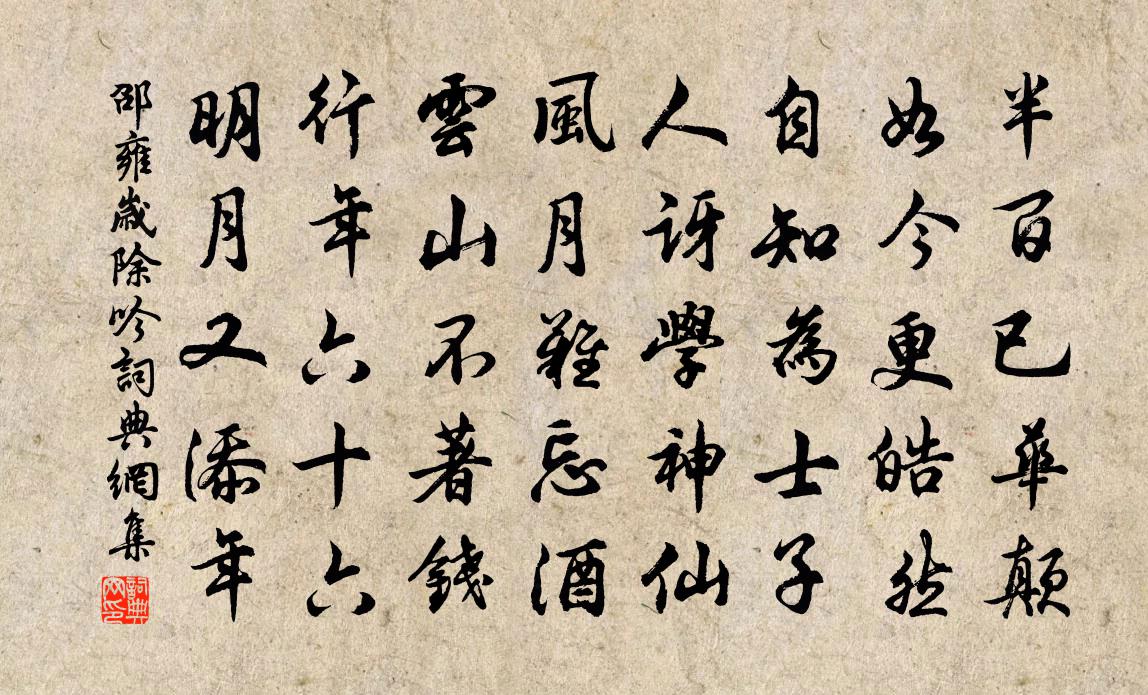 半百已華顛
如今更皓然
自知為士子
人訝學神仙
風月難忘酒
雲山不著錢
行年六十六
明月又添年
邵雍歲除吟詞典網集
詞典网印